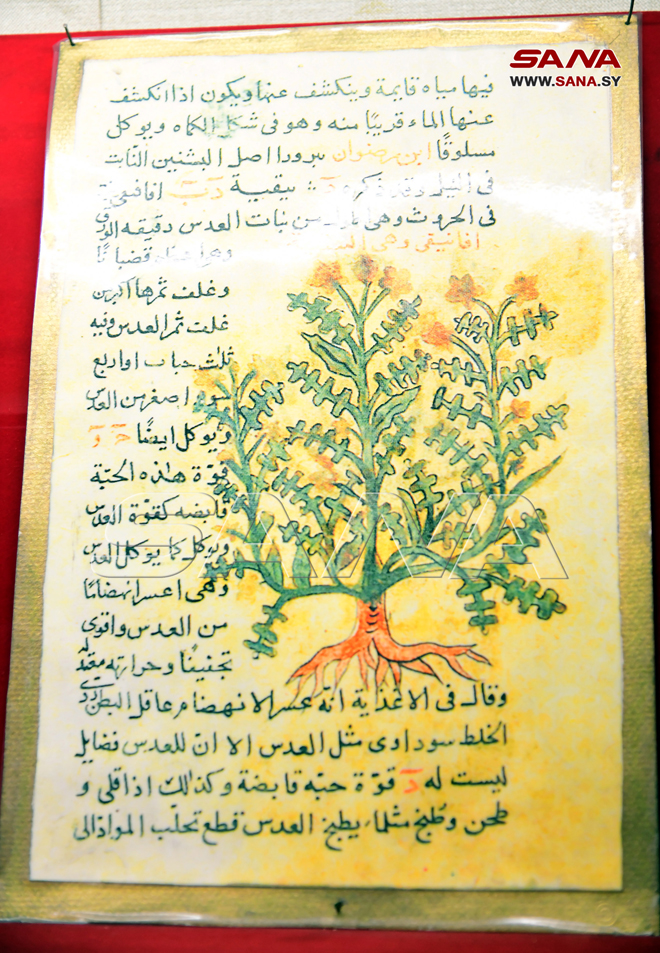 SANA
WWW.SANA.SY
فيها مياه قايمة وينكشف عنها ويكون اذا انكشف
عنها الماء قريبًا منه وهو فى شكل الكماه ويوكل
مسلوقًا ابن رضوان يبرود اصل البشنين النابت
فى النيل وقد ذكره بيقية افاقى
فى الحروث وهى من نبات العدس دقيقه الورق
افانيقى وهى
قضبانا
وغلف ثمرها اكبر من
غلف ثمر العدس وفيه
ثلث حبات او اربع
سود اصغر من العدس
ويوكل ايضًا
قوّة هذه الحبّة
قابضه كقوّة العدس
ويوكل كما يوكل العدس
وهى اعسر انهضامًا
من العدس واقوى
تجفيفًا وحرارته معتدله
وقال فى الاغذاية انه عسر الانهضام عاقل البطن ردى
الخلط سوداوى مثل العدس الا ان للعدس فضايل
ليست له د قوّة حبّه قابضة وكذلك اذا قلى و
طحن وطُبخ مثلما يطبخ العدس قطع تحلّب المواد الى
SANA